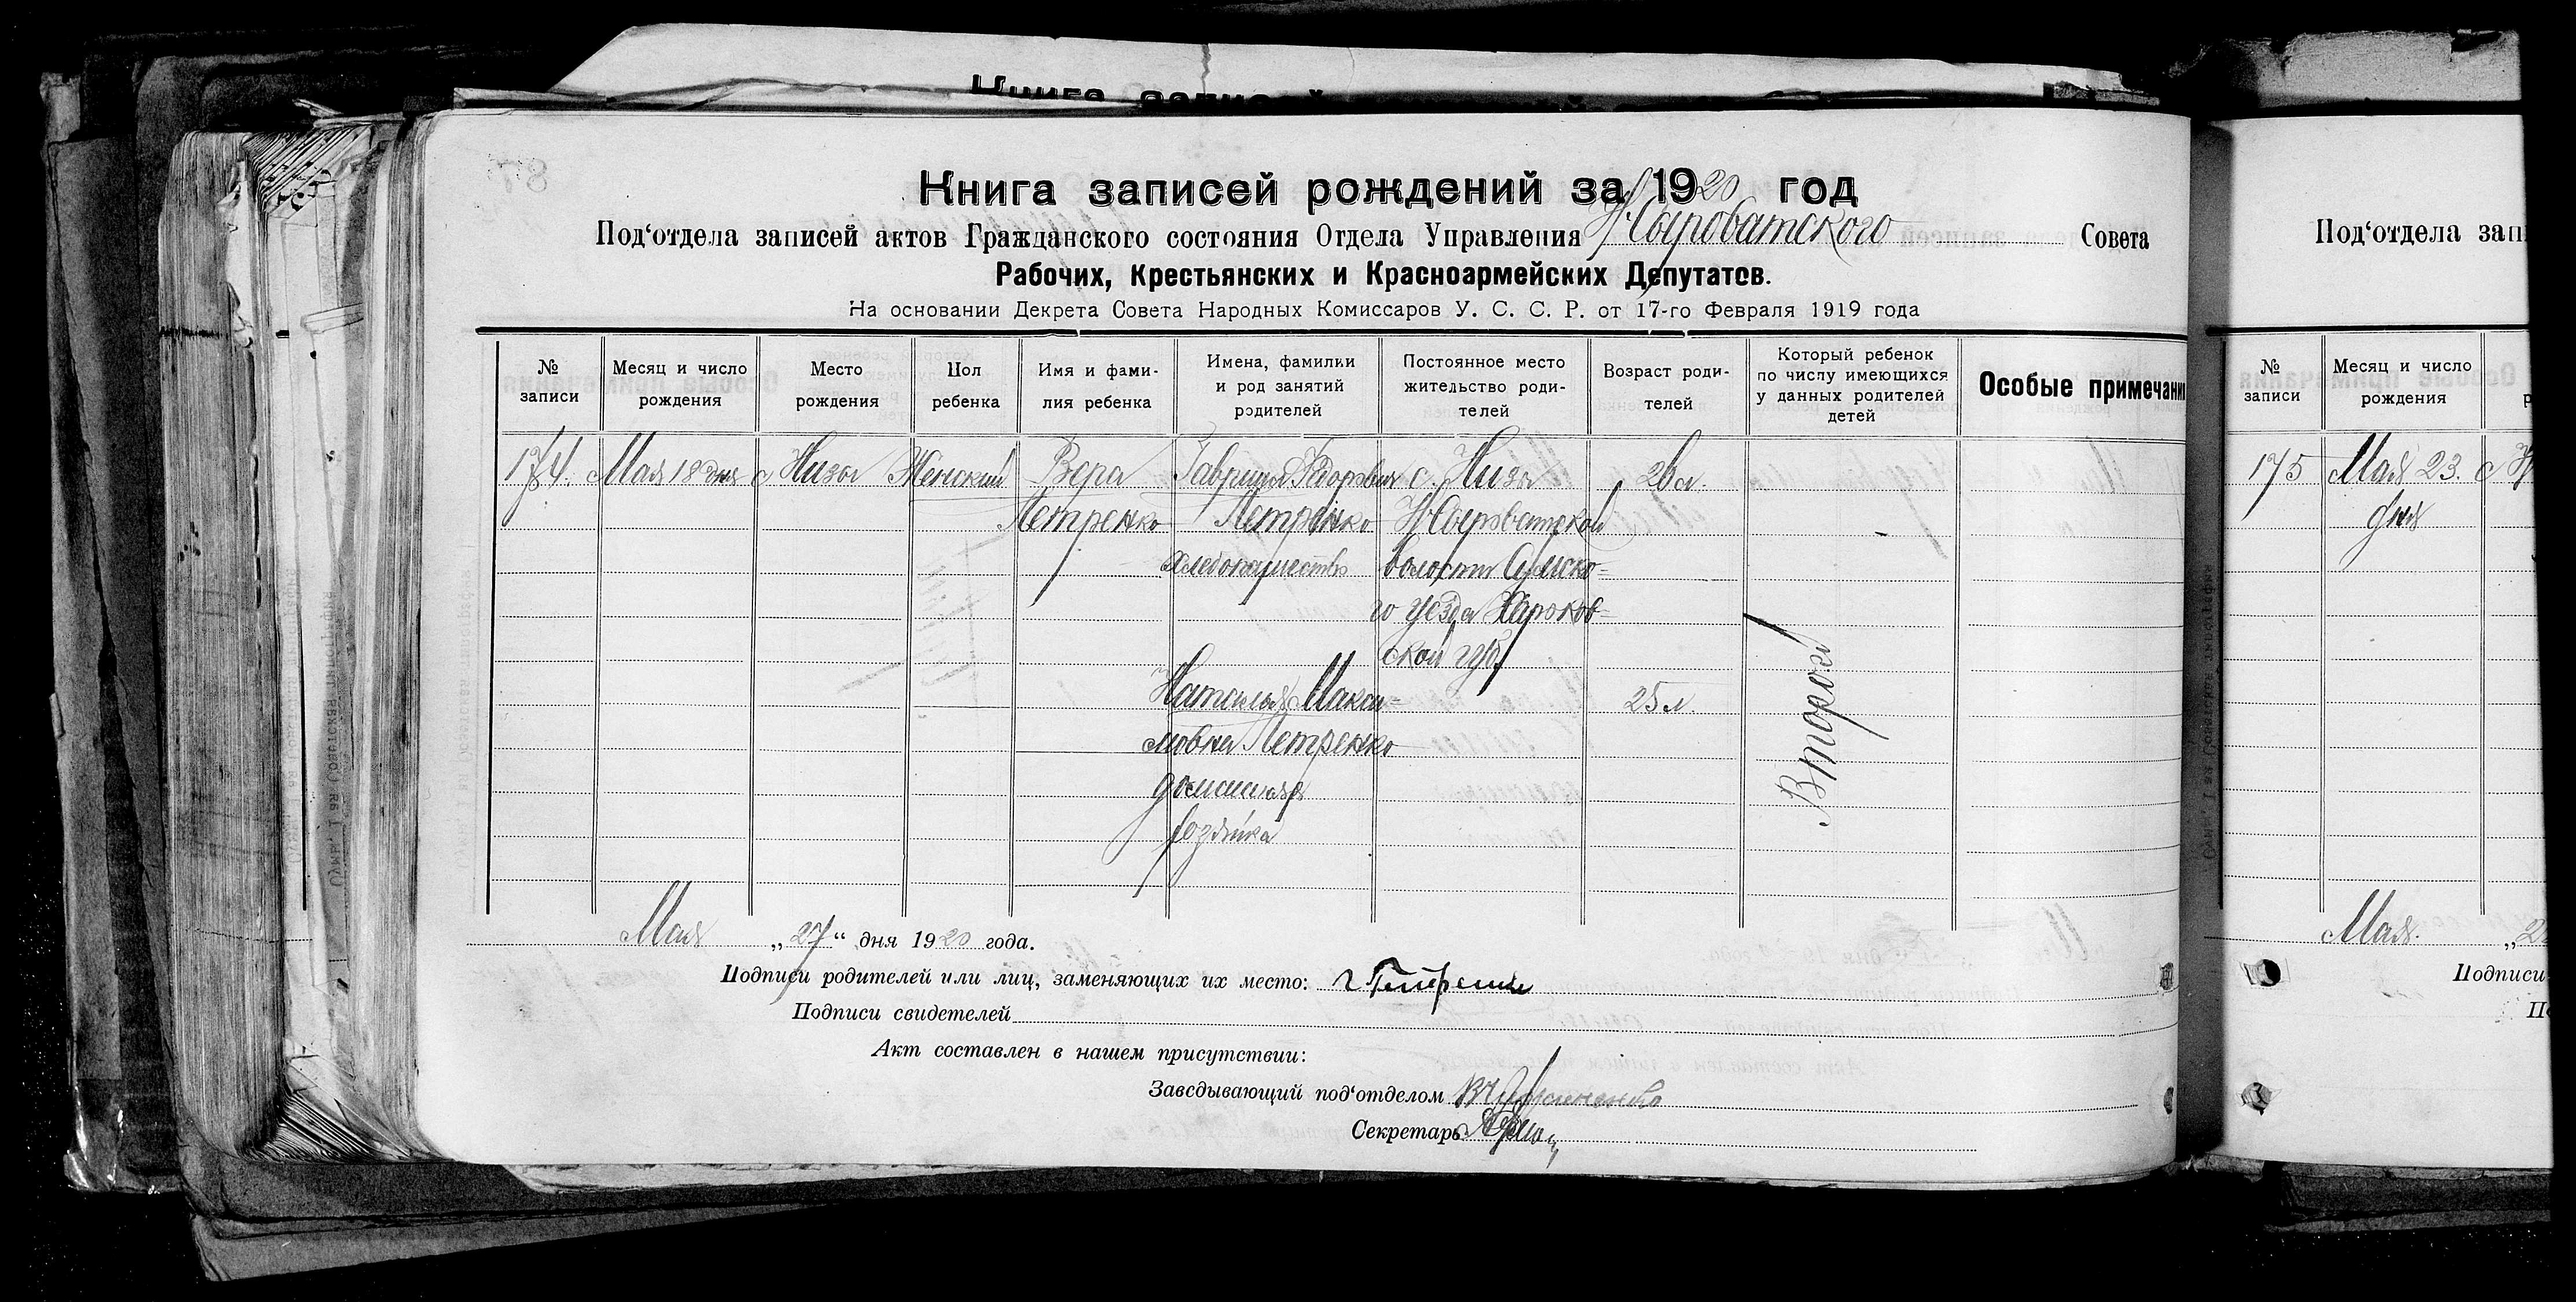 Книга записей рождений за 1920 год
Под‘отдела записей актов Гражданского состояния Отдела Управления Н Сыроватского Совета
Рабочих, Крестьянских и Красноармейских Депутатов.
На основании Декрета Совета Народных Комиссаров У. С. С. Р. от 17-го Февраля 1919 года
№ записи
Месяц и число рождения
Место рождения
Пол ребенка
Имя и фами-
лия ребенка
Имена, фамилки
и род занятий
родителей
Постоянное место
жительство роди-
телей
Возраст роди-
телей
Который ребенок
по числу имеющихся
у данных родителей
детей
Особые примечани
174. Мая 18 дня с Низы Женский Вера Гавриил Федорович с. Низы 26 л.
Петренко Петренко Н Сыроватской
хлебопашество волости Сумско=
го уезда Харьков=
ской губ.
Наталья Макси= 25 л.
мовна Петренко
домашняя
хозяйка
Второй
Мая „27“ дня 1920 года.
Подписи родителей или лиц, заменяющих их место: Г Петренко
Подписи свидетелей
Акт составлен в нашем присутствии:
Заведывающий под‘отделом
Секретарь
Под‘отдела зап
№ записи
Месяц и число рождения
175 Мая 23. с Н
дня
Мая. „2
Подписи